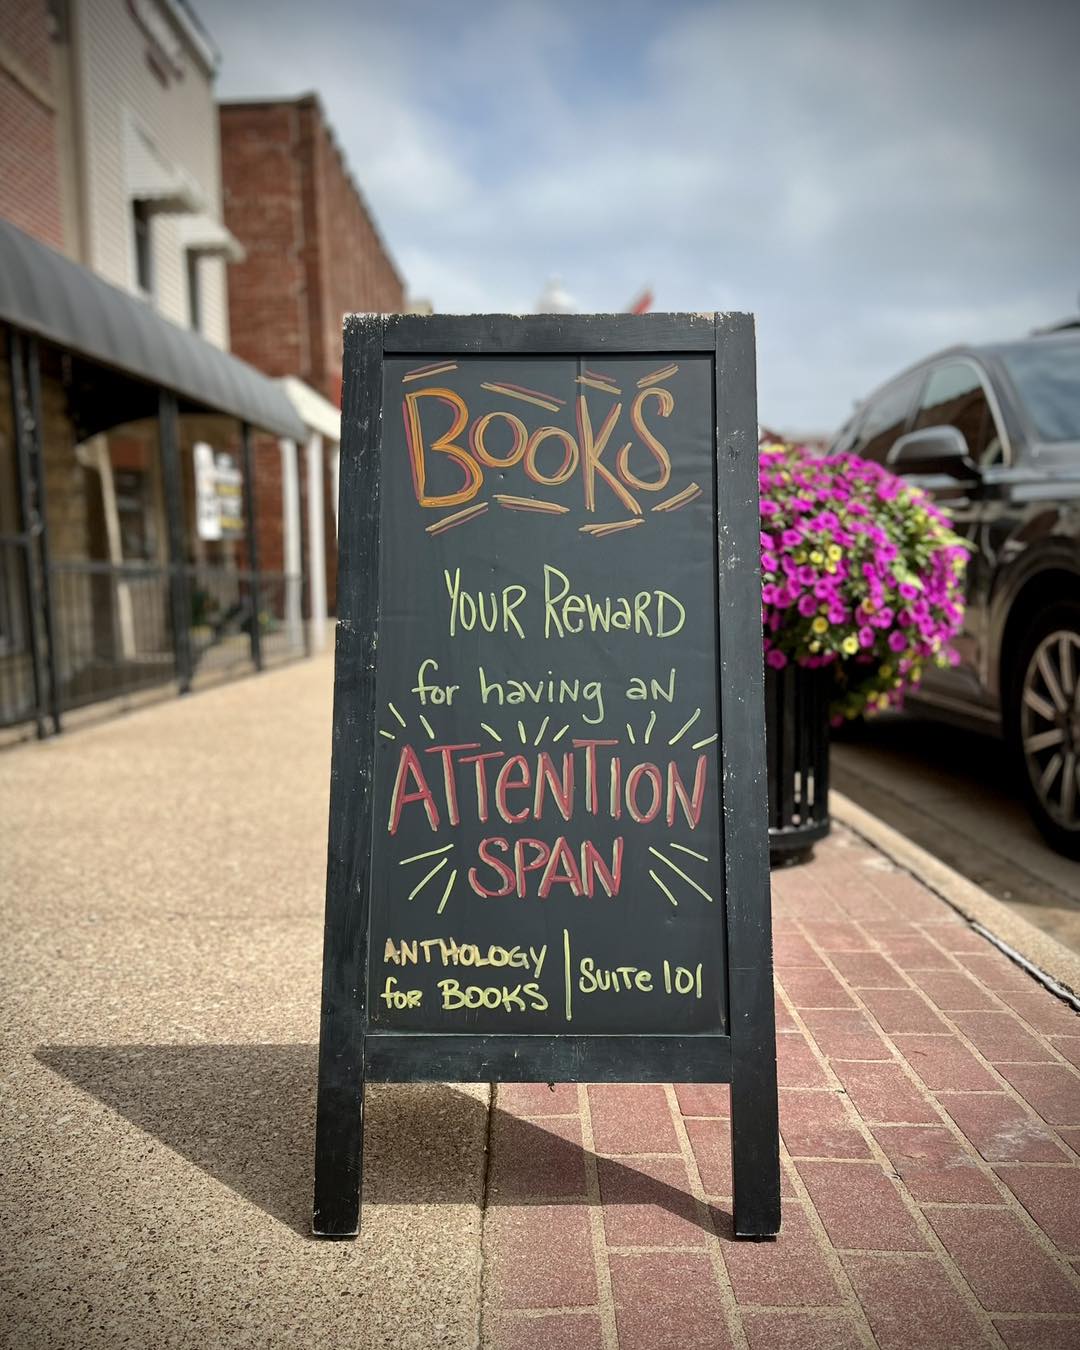 BOOKS
YOUR REWARD
for having an
ATTENTION
SPAN
ANTHOLOGY
for BOOKS
SUITE 101